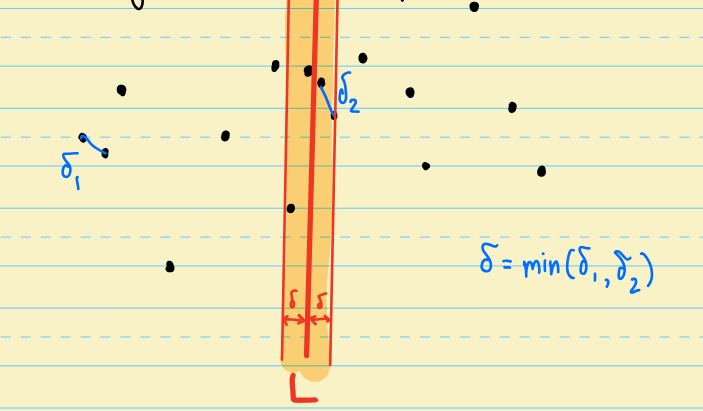 δ₂
δ₁
δ = min(δ₁, δ₂)
δ δ
L